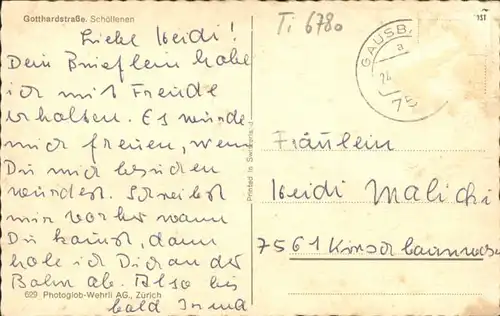 Gotthardstraße. Schöllenen
Ti 6780
GAUSB
a
24
75
Liebe Heidi!
Dein Brieflein habe
ich mit Freude
erhalten. Es würde
mich freuen, wenn
Du mich besuchen
würdest. Schreibst
mir vorher wann
Du kommst, dann
hole ich Dich an der
Bahn ab. Also bis
bald
Printed in
Fräulein
Heidi Malichi
7561
629 Photoglob-Wehrli AG., Zürich